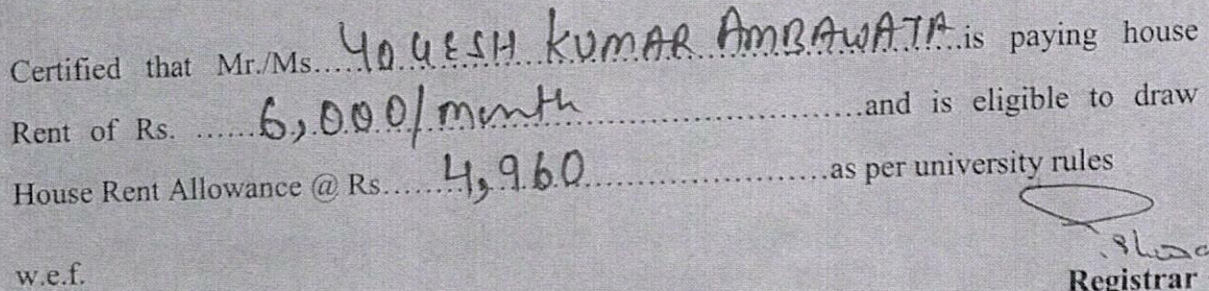 Certified that Mr./Ms.....YOGESH KUMAR AMBAWATA.is paying house
Rent of Rs. ......6,000/month.................................and is eligible to draw
House Rent Allowance @ Rs......4,960........................as per university rules
w.e.f.
Registrar